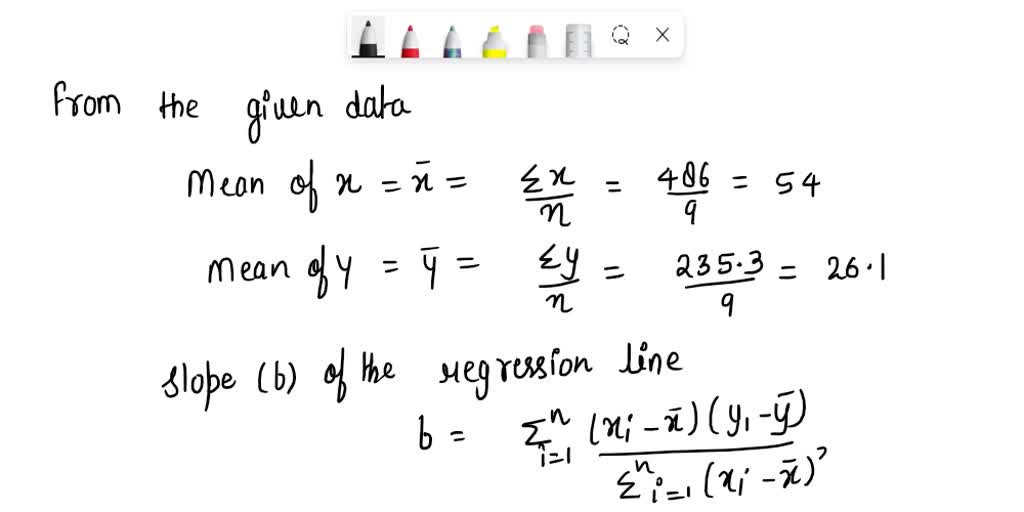 From the given data
Mean of x = x̄ = Σx/n = 486/9 = 54
Mean of y = ȳ = Σy/n = 235.3/9 = 26.1
slope (b) of the regression line
b = Σⁿᵢ₌₁ (xᵢ - x̄)(y₁ - ȳ) / Σⁿᵢ₌₁ (xᵢ - x̄)²